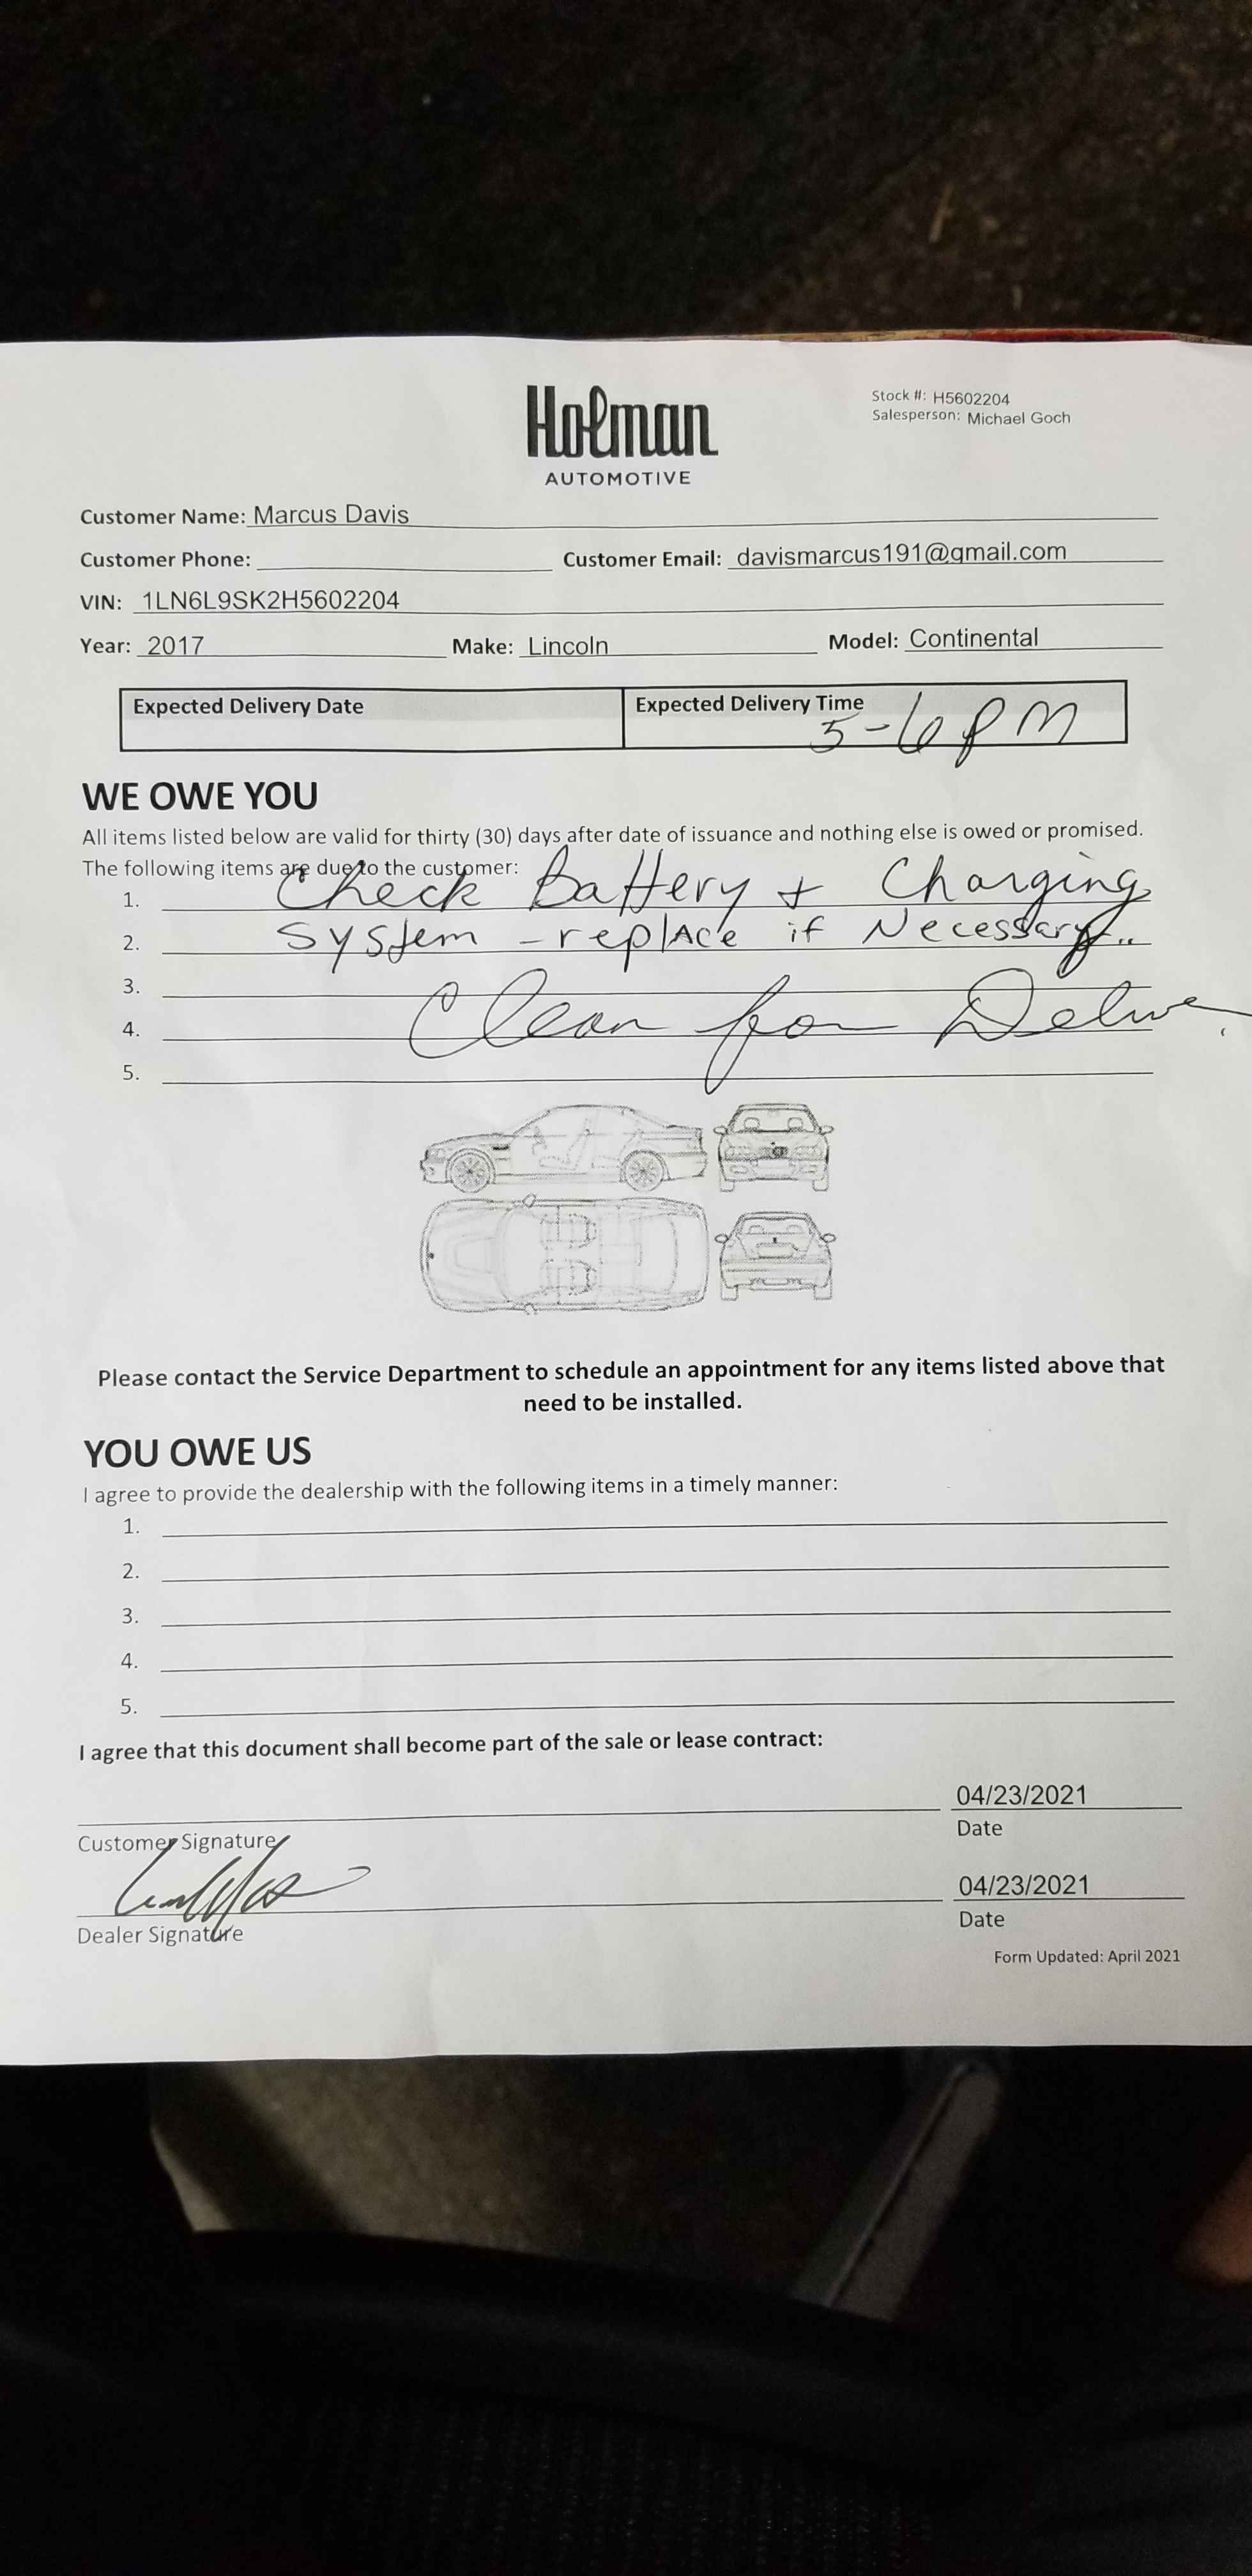 Holman
AUTOMOTIVE
Stock #: H5602204
Salesperson: Michael Goch
Customer Name: Marcus Davis
Customer Phone: Customer Email: davismarcus191@gmail.com
VIN: 1LN6L9SK2H5602204
Year: 2017 Make: Lincoln Model: Continental
Expected Delivery Date
Expected Delivery Time
5-6 PM
WE OWE YOU
All items listed below are valid for thirty (30) days after date of issuance and nothing else is owed or promised.
The following items are due to the customer:
1. Check Battery + Charging
2. System - replace if Necessary..
3.
4. Clean for
5.
Please contact the Service Department to schedule an appointment for any items listed above that
need to be installed.
YOU OWE US
I agree to provide the dealership with the following items in a timely manner:
1.
2.
3.
4.
5.
I agree that this document shall become part of the sale or lease contract:
04/23/2021
Customer Signature Date
04/23/2021
Dealer Signature Date
Form Updated: April 2021